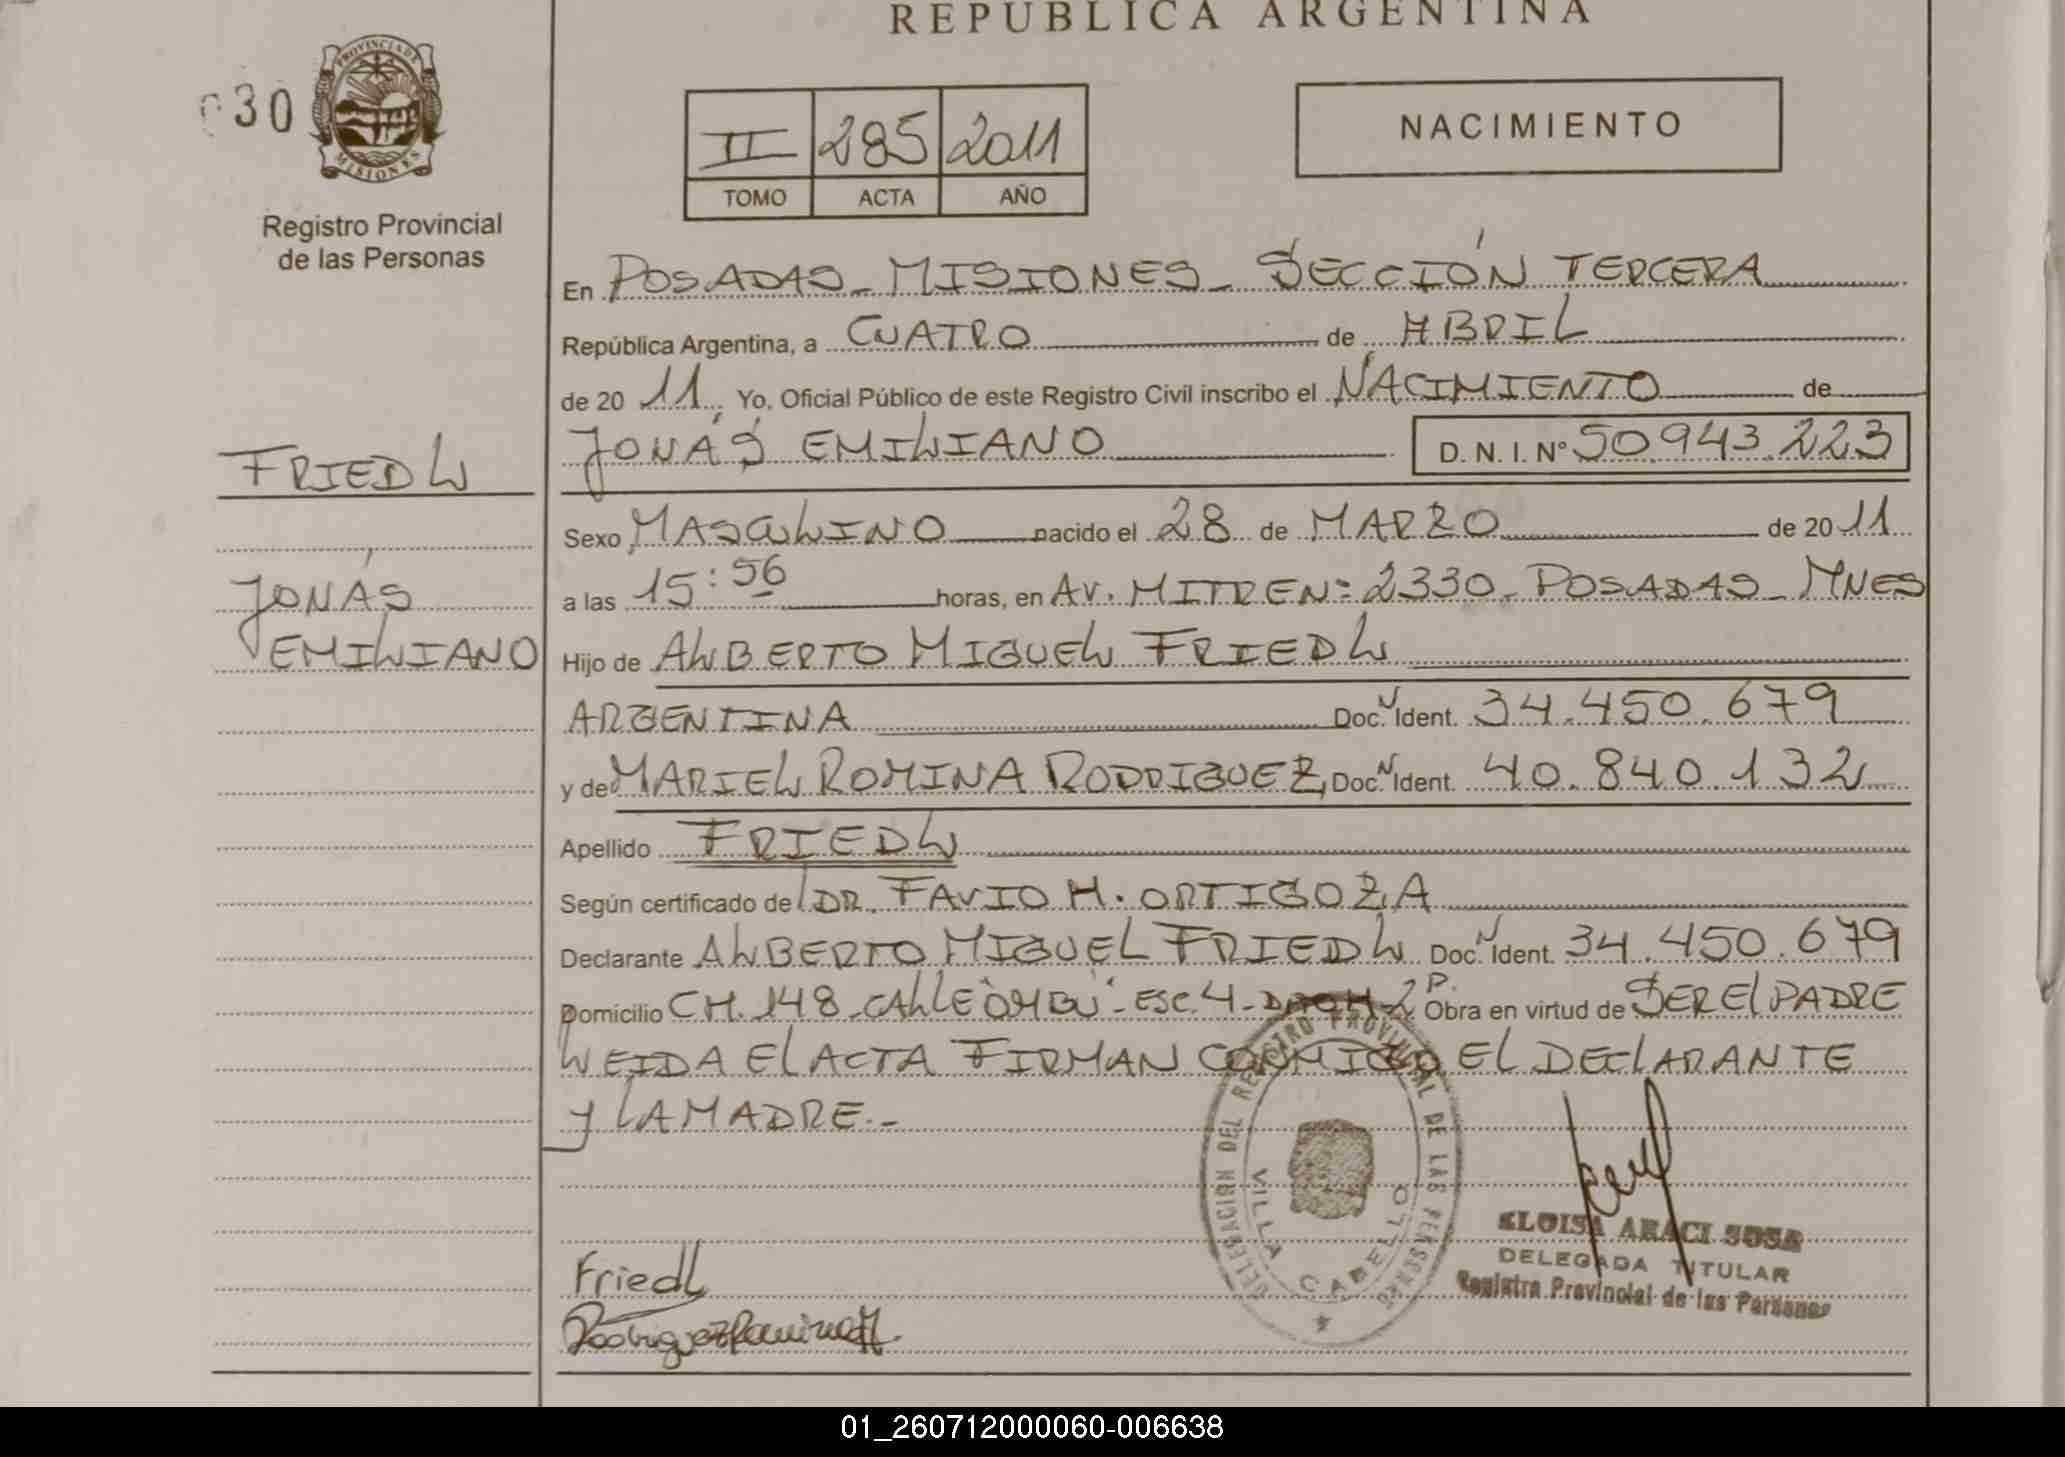 REPUBLICA ARGENTINA
030
PROVINCIA DE
MISIONES
Registro Provincial
de las Personas
II 285 2011
TOMO ACTA AÑO
NACIMIENTO
En POSADAS - MISIONES - SECCIÓN TERCERA
República Argentina, a CUATRO de ABRIL
de 20 11 Yo, Oficial Público de este Registro Civil inscribo el NACIMIENTO de
JONÁS EMILIANO D. N. I. Nº 50.943.223
FRIEDL
Sexo MASCULINO nacido el 28 de MARZO de 20 11
JONÁS
a las 15:56 horas, en AV. MITRE Nº 2330 - POSADAS - MNES
EMILIANO
Hijo de ALBERTO MIGUEL FRIEDL
ARGENTINA Doc. Ident. 34.450.679
y de MARIEL ROMINA RODRIGUEZ Doc. Ident. 40.840.132
Apellido FRIEDL
Según certificado de DR. FAVIO H. ORTIGOZA
Declarante ALBERTO MIGUEL FRIEDL Doc. Ident. 34.450.679
Domicilio CH. 148 - CALLE OMBÚ - ESC. 4 - 2 P. Obra en virtud de SER EL PADRE
LEIDA EL ACTA FIRMAN CONMIGO EL DECLARANTE
Y LA MADRE.-
DELEGACION DEL REGISTRO PROVINCIAL DE LAS PERSONAS
VILLA CABELLO
ELOISA ARACI SOSA
DELEGADA TITULAR
Registro Provincial de las Personas
Friedl
Rodriguez Romina M.
01_260712000060-006638